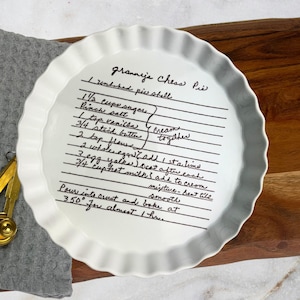 granny's Chess Pie
1 unbaked pie shell
1 1/2 cups sugar
Pinch salt
1 tsp vanilla } cream
3/4 stick butter } together
2 tsp flour
2 whole eggs } add 1 at a time
2 egg yolks } beat after each
3/4 cup hot milk } add to cream
mixture. beat till
smooth
Pour into crust and bake at
350° for almost 1 hour